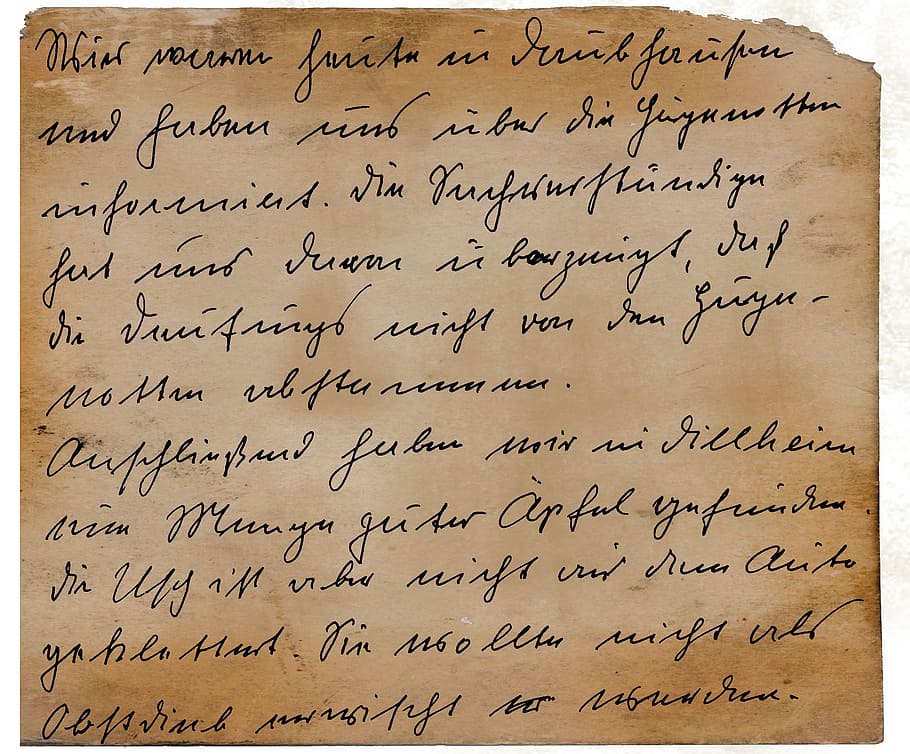 Wir waren heute in Daubhausen
und haben uns über die Hugenotten
informiert. Die Sachverständige
hat uns davon überzeugt, daß
die nicht von den Huge-
notten abstammen.
Anschließend haben wir in Dillheim
eine Menge guter Äpfel gefunden.
Die Usch ist aber nicht aus dem Auto
geklettert. Sie wollte nicht als
Obstdieb erwischt werden.